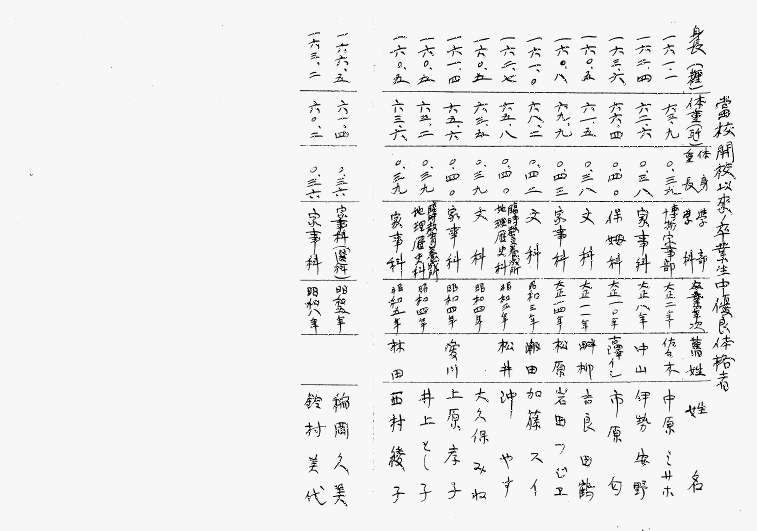 當校開校以來卒業生中優良体格者
身長(糎) 体重(瓩) 体重 身長 學部 學科 卒業年次 舊姓 姓名
一六一.二 六三.九 〇.三九 博物家事部 大正二年 佐々木 中原ミサホ
一六三.四 六二.六 〇.三八 家事科 大正八年 中山 伊勢安野
一六三.六 六六.四 〇.四〇 保姆科 大正一〇年 市原
一六〇.五 六一.五 〇.三八 文科 大正一一年 畔柳 吉良田鶴
一六〇.八 六九.九 〇.四三 家事科 大正一四年 松原 岩田つじヱ
一六一.〇 六八.二 〇.四二 文科 昭和三年 潮田 加藤スイ
一六二.七 六五.八 〇.四〇 臨時教員養成所地理歴史科 昭和五年 松井 沖やす
一六〇.五 六三.五 〇.三九 文科 昭和四年 大久保みね
一六一.四 六五.六 〇.四〇 家事科 昭和四年 愛川 上原孝子
一六〇.五 六三.二 〇.三九 臨時教員養成所地理歴史科 昭和四年 井上とし子
一六〇.五 六三.六 〇.三九 家事科 昭和五年 林田 西村綾子
一六六.五 六一.四 〇.三六 家事科 昭和五年 稲岡久美
一六三.二 六〇.二 〇.三六 家事科 昭和八年 鈴村美代